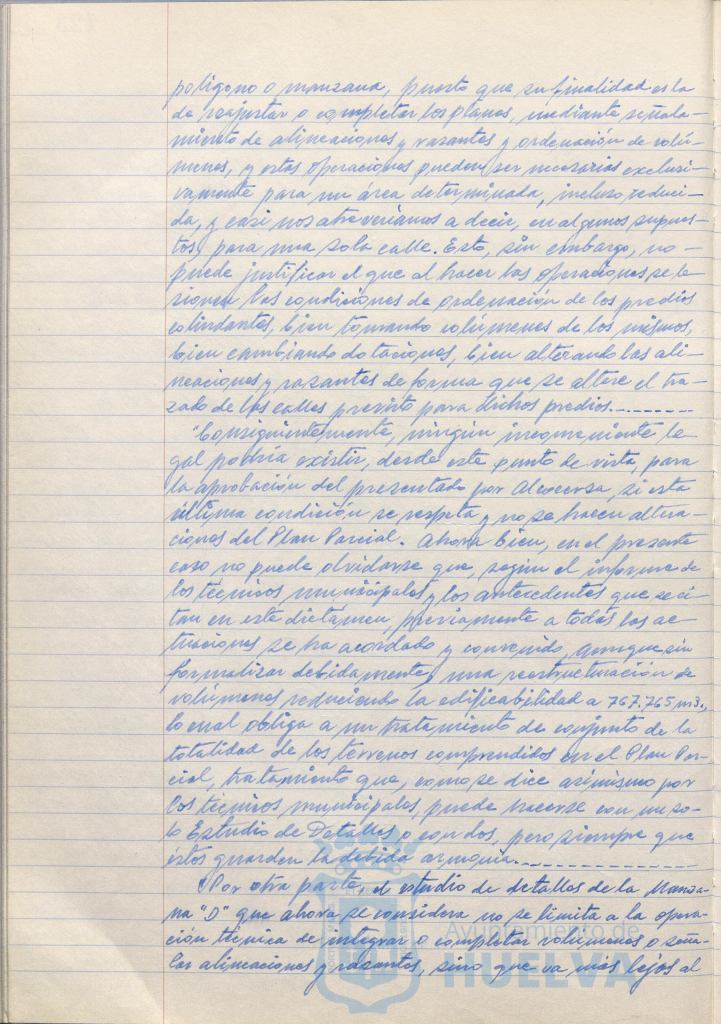 polígono o manzana, puesto que su finalidad es la
de reajustar o completar los planes, mediante señala-
miento de alineaciones y rasantes y ordenación de volú-
menes, y estas operaciones pueden ser necesarias exclusi-
vamente para un área determinada, incluso reduci-
da, y casi nos atreveríamos a decir, en algunos supues-
tos, para una sola calle. Esto, sin embargo, no
puede justificar el que al hacer las operaciones se le-
sionen las condiciones de ordenación de los predios
colindantes, bien tomando volúmenes de los mismos,
bien cambiando dotaciones, bien alterando las ali-
neaciones y rasantes de forma que se altere el tra-
zado de las calles previsto para dichos predios.--------
"Consiguientemente, ningún inconveniente le-
gal podría existir, desde este punto de vista, para
la aprobación del presentado por Alcocersa, si esta
última condición se respeta y no se hacen altera-
ciones del Plan Parcial. Ahora bien, en el presente
caso no puede olvidarse que, según el informe de
los técnicos municipales y los antecedentes que se ci-
tan en este dictamen, previamente a todas las ac-
tuaciones se ha acordado y convenido, aunque sin
formalizar debidamente, una reestructuración de
volúmenes reduciendo la edificabilidad a 767.765 m3.,
lo cual obliga a un tratamiento de conjunto de la
totalidad de los terrenos comprendidos en el Plan Par-
cial, tratamiento que, como se dice asimismo por
los técnicos municipales, puede hacerse con un so-
lo Estudio de Detalles, o con dos, pero siempre que
éstos guarden la debida armonía.----------------
Por otra parte, el estudio de detalles de la Manza-
na "D" que ahora se considera no se limita a la opera-
ción técnica de integrar o completar volúmenes o seña-
lar alineaciones y rasantes, sino que va más lejos al
Ayuntamiento de
HUELVA